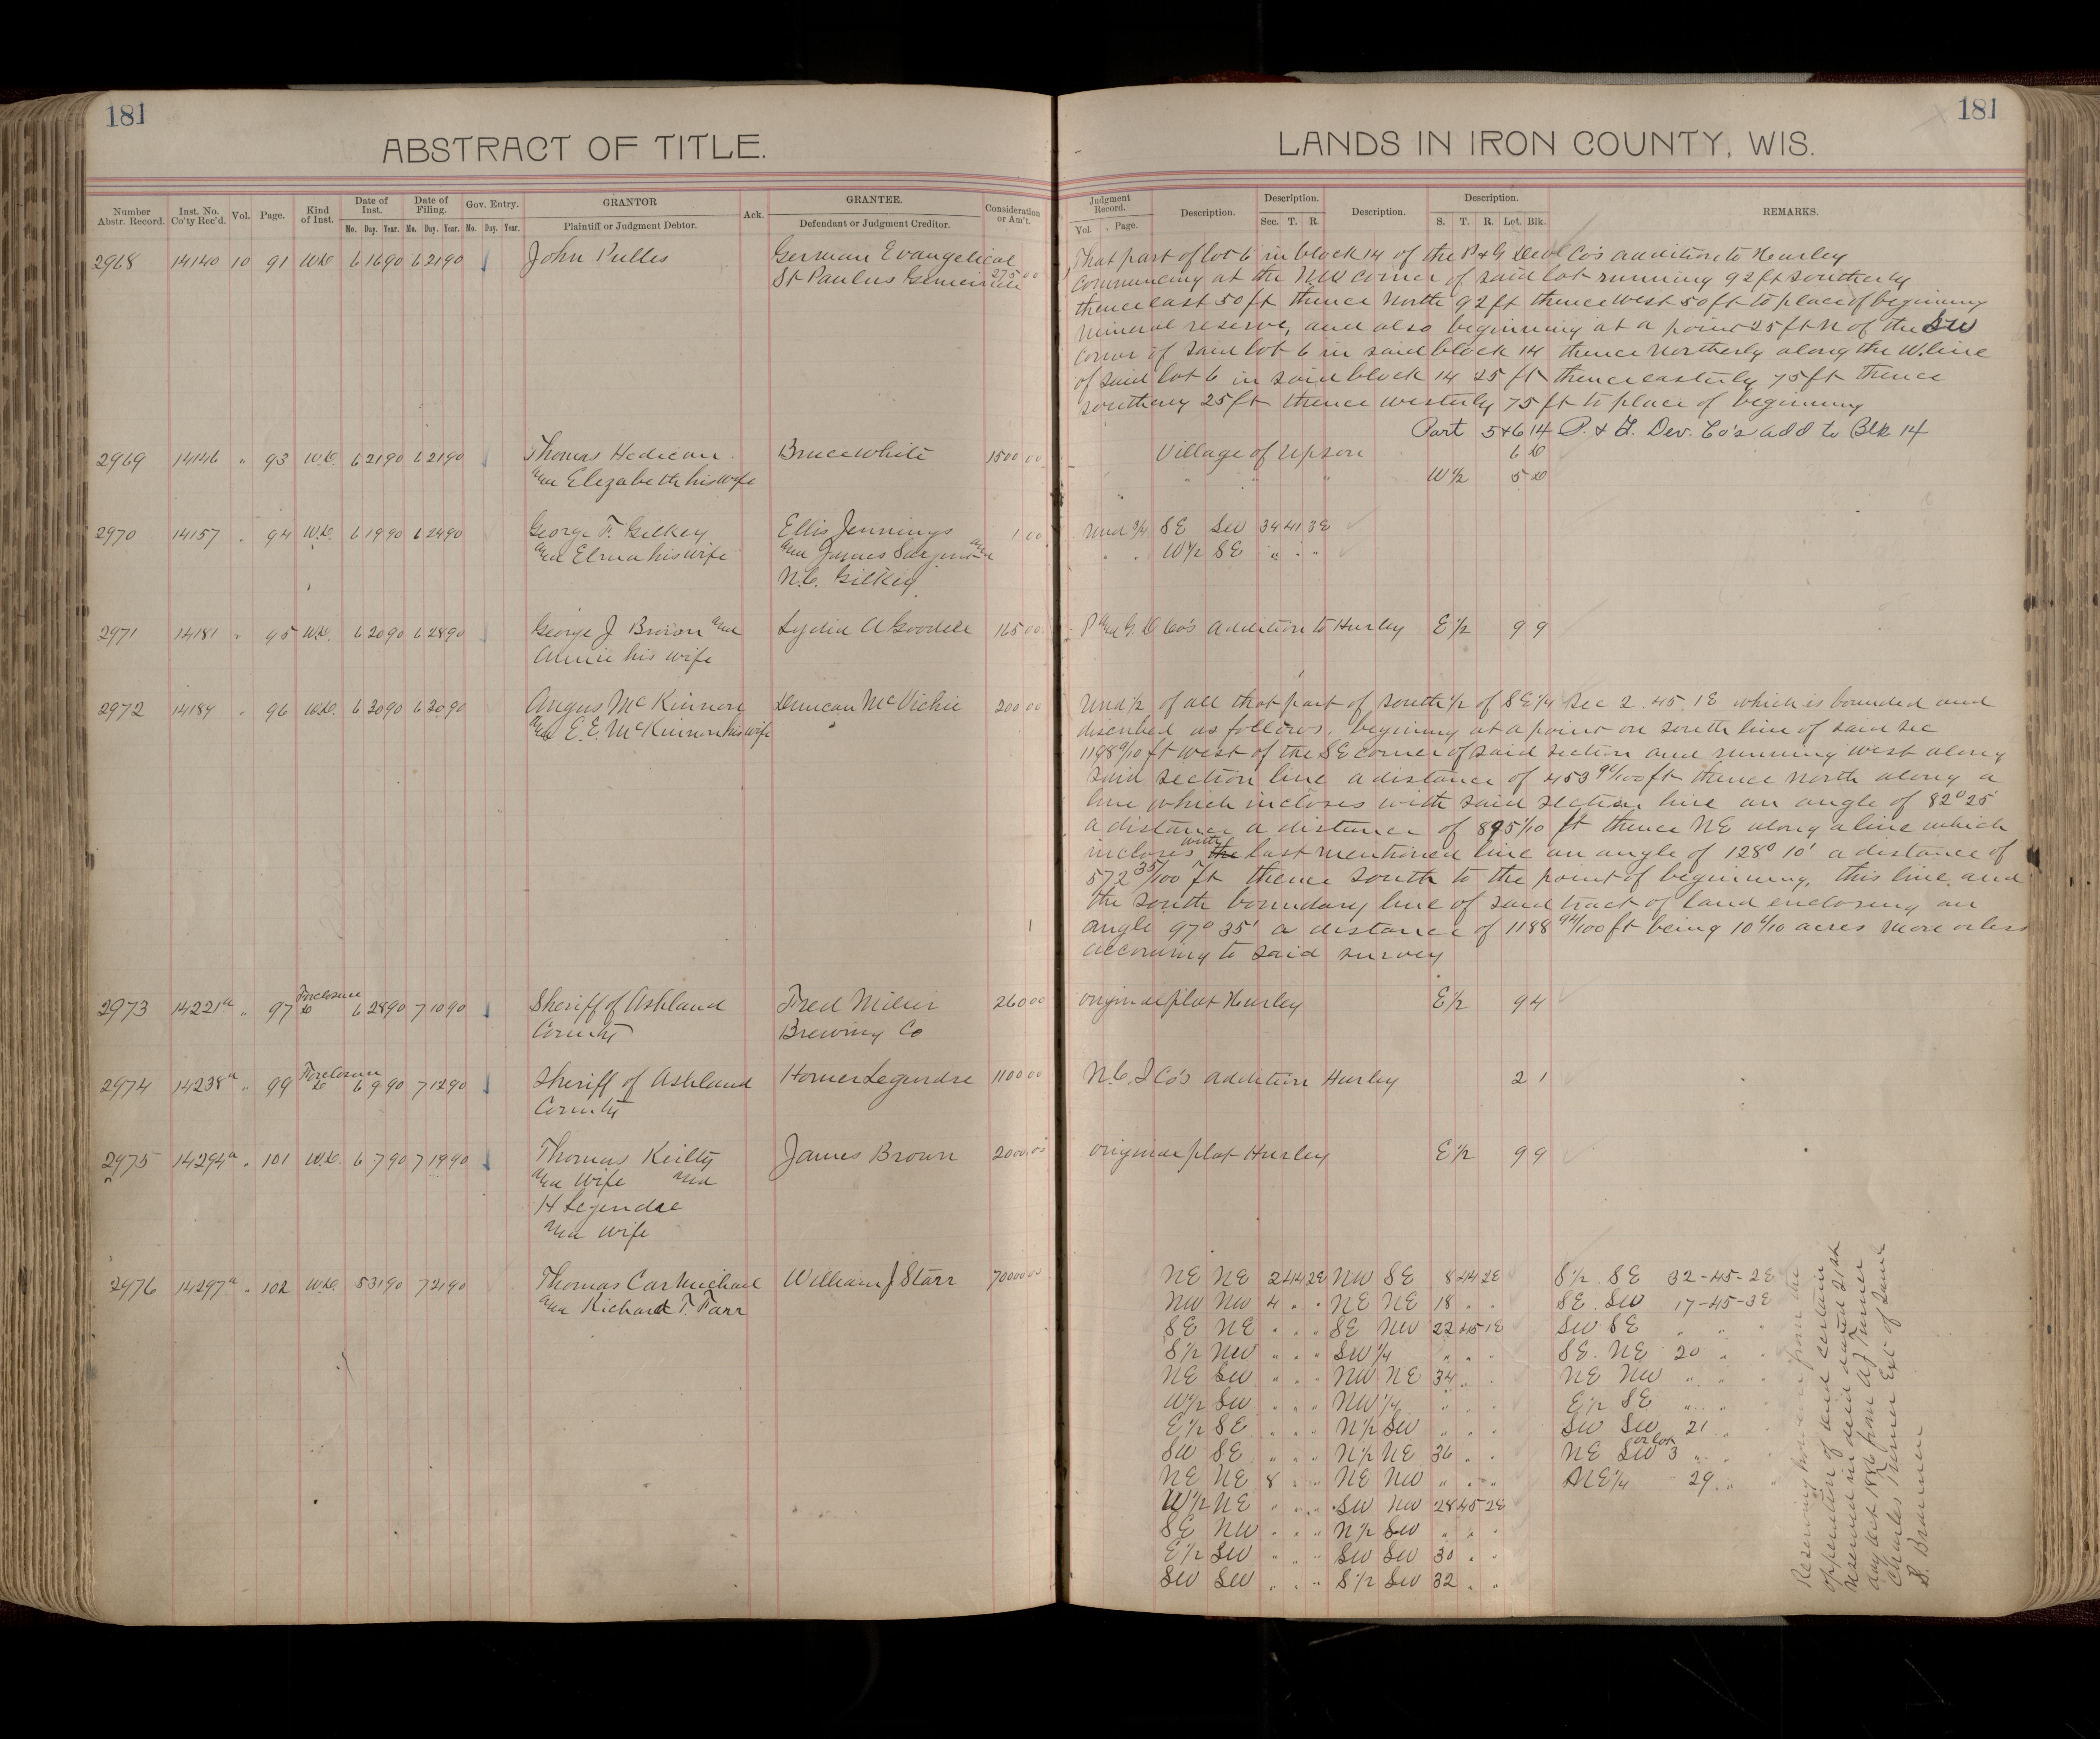 181
181
ABSTRACT OF TITLE.
LANDS IN IRON COUNTY, WIS.
Number Abstr. Record. Inst. No. Co'ty Rec'd. Vol. Page. Kind of Inst. Date of Inst. Date of Filing. Gov. Entry. GRANTOR Ack. GRANTEE. Consideration or Am't.
Mo. Day. Year. Mo. Day. Year. Mo. Day. Year. Plaintiff or Judgment Debtor. Defendant or Judgment Creditor.
Judgment Record. Description. Description. Description. Description. REMARKS.
Vol. Page. Sec. T. R. S. T. R. Lot. Blk.
2968 14140 10 91 W.D. 6 16 90 6 21 90 John Pulles German Evangelical
St Paulus Gemeinde 275 00
That part of lot 6 in block 14 of the P & G Devl Co's addition to Hurley
commencing at the NW corner of said lot running 92 ft southerly
thence east 50 ft thence North 92 ft thence West 50 ft to place of beginning
mineral reserve, and also beginning at a point 25 ft N of the SW
corner of said lot 6 in said block 14 thence Northerly along the W. line
of said lot 6 in said block 14 25 ft thence easterly 75 ft thence
southerly 25 ft thence westerly 75 ft to place of beginning
Part 5 & 6 14 P. & G. Dev. Co's add to Blk 14
2969 14146 " 93 W.D. 6 21 90 6 21 90 Thomas Hedican Bruce White 1500 00 Village of Upson 6 D
and Elizabeth his wife " " " W 1/2 5 D
2970 14157 " 94 W.D. 6 19 90 6 24 90 George F. Gilkey Ellis Jennings 1 00 Und 3/4 SE SW 34 41 3E
and Elma his wife and James Sargent and " " W 1/2 SE " " "
N.C. Gilkey
2971 14181 " 95 W.D. 6 20 90 6 28 90 George J Brown and Lydia A Goodell 165 00 P and G. D Co's addition to Hurley E 1/2 9 9
Annie his wife
2972 14184 " 96 W.D. 6 30 90 6 30 90 Angus McKinnon Duncan McVichie 200 00
and E.E. McKinnon his wife
Und 1/2 of all that part of South 1/2 of SE 1/4 Sec 2. 45. 1E which is bounded and
discribed as follows, begining at a point on south line of said sec
1198 9/10 ft West of the SE corner of said section and running west along
said section line a distance of 453 94/100 ft thence north along a
line which incloses with said section line an angle of 82° 25'
a distance a distance of 895 1/10 ft thence NE along a line which
incloses with the last mentioned line an angle of 128° 10' a distance of
572 35/100 ft thence south to the point of beginning, this line and
the south boundary line of said tract of land enclosing an
angle 97° 35' a distance of 1188 94/100 ft being 10 6/10 acres more or less
according to said survey
2973 14221a " 97 Foreclosure D 6 28 90 7 10 90 Sheriff of Ashland Fred Miller 260 00 original plat Hurley E 1/2 9 4
County Brewing Co
2974 14238a " 99 Foreclosure D 6 9 90 7 12 90 Sheriff of Ashland Homer Legendre 1100 00 N.C.I Co's addition Hurley 2 1
County
2975 14294a " 101 W.D. 6 7 90 7 19 90 Thomas Keilty James Brown 2000 00 original plat Hurley E 1/2 9 9
and Wife and
H Legendre
and wife
2976 14297a " 102 W.D. 5 31 90 7 21 90 Thomas Carmichael William J Starr 70000 00
and Richard T. Farr
NE NE 2 44 2E NW SE 8 44 2E S 1/2 SE 32-45-2E
NW NW 4 " " NE NE 18 " " SE SW 17-45-3E
SE NE " " " SE NW 22 45 1E SW SE " " "
S 1/2 NW " " " SW 1/4 " " " SE NE 20 " "
NE SW " " " NW NE 34 " " NE NW " " "
W 1/2 SW " " " NW 1/4 " " " E 1/2 SE " " "
E 1/2 SE " " " N 1/2 SW " " " SW SW 21 " "
SW SE " " " N 1/2 NE 36 " " NE SW or lot 3 " " "
NE NE 8 " " NE NW " " " NE 1/4 29 " "
W 1/2 NE " " " SW NW 28 45 2E
SE NW " " " N 1/2 SW " " "
E 1/2 SW " " " SW SW 30 " "
SW SW " " " S 1/2 SW 32 " "
Reserving however from the
opperation of said certain
reserved in deed dated 21st
day Oct 1886 from A J Turner
Charles Turner Ext of Jane
S. Brannen